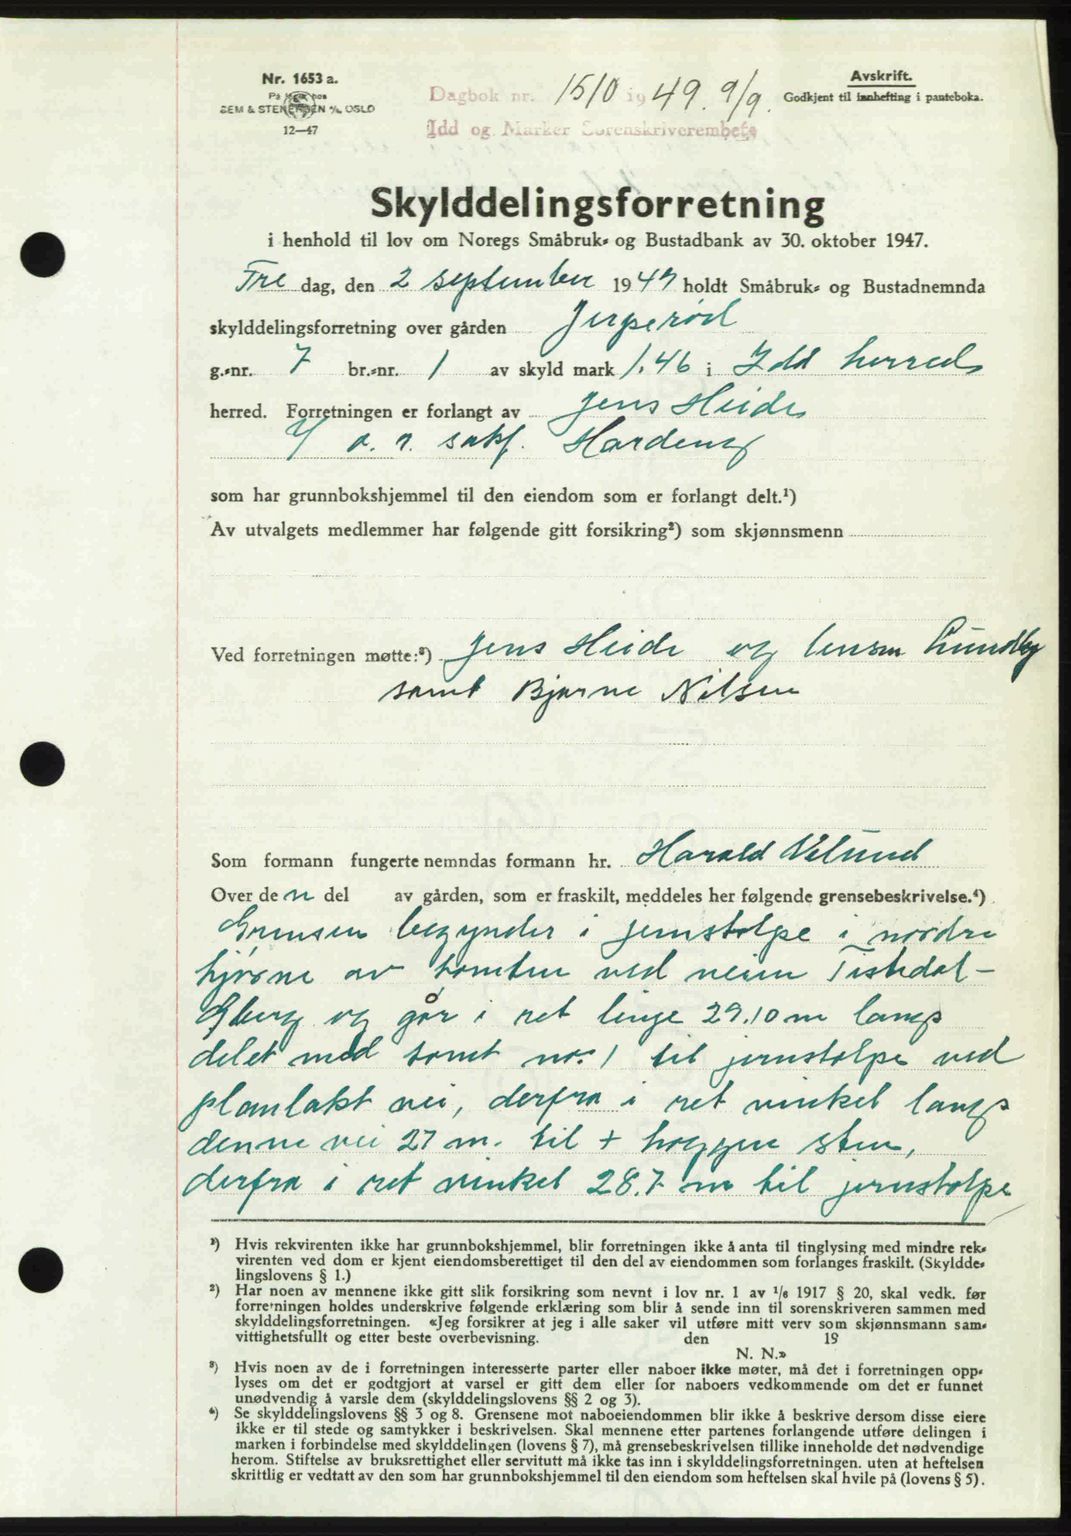 Nr. 1653 a.
SEM & STENERSEN A/S, OSLO
12—47
Dagbok nr. 1510 1949. 9/9.
Idd og Marker Sorenskriverembete
Avskrift.
Godkjent til innhefting i panteboka.
Skylddelingsforretning
i henhold til lov om Noregs Småbruk- og Bustadbank av 30. oktober 1947.
Fre dag, den 2 september 1949 holdt Småbruk- og Bustadnemnda
skylddelingsforretning over gården Jerperød
g.-nr. 7 br.-nr. 1 av skyld mark 1.46 i Idd herreds
herred. Forretningen er forlangt av Jens Heide
v/ o. r. sakf. Hardeng
som har grunnbokshjemmel til den eiendom som er forlangt delt.¹)
Av utvalgets medlemmer har følgende gitt forsikring²) som skjønnsmenn
Ved forretningen møtte:³) Jens Heide og Lundby
samt Bjarne Nilsen
Som formann fungerte nemndas formann hr. Harald Vilund
Over de n del av gården, som er fraskilt, meddeles her følgende grensebeskrivelse.⁴)
Grensen begynder i jernstolpe i nordre
hjørne av tomten ved veien Tistedal-
og går i ret linje 29.10 m langs
delet med tomt no: 1 til jernstolpe ved
planlakt vei, derfra i ret vinkel langs
denne vei 27 m. til + hoggen sten,
derfra i ret vinkel 28.7 m til jernstolpe
¹) Hvis rekvirenten ikke har grunnbokshjemmel, blir forretningen ikke å anta til tinglysing med mindre rek-
virenten ved dom er kjent eiendomsberettiget til den del av eiendommen som forlanges fraskilt. (Skyldde-
lingslovens § 1.)
²) Har noen av mennene ikke gitt slik forsikring som nevnt i lov nr. 1 av 1/6 1917 § 20, skal vedk. før
forretningen holdes underskrive følgende erklæring som blir å sende inn til sorenskriveren sammen med
skylddelingsforretningen. «Jeg forsikrer at jeg i alle saker vil utføre mitt verv som skjønnsmann sam-
vittighetsfullt og etter beste overbevisning. den 19
N. N.»
³) Hvis noen av de i forretningen interesserte parter eller naboer ikke møter, må det i forretningen opp-
lyses om det er godtgjort at varsel er gitt dem eller for naboers vedkommende om det er funnet
unødvendig å varsle dem (skylddelingslovens §§ 2 og 3).
⁴) Se skylddelingslovens §§ 3 og 8. Grensene mot naboeiendommen blir ikke å beskrive dersom disse eiere
ikke er til stede og samtykker i beskrivelsen. Skal mennene etter partenes forlangende utføre delingen i
marken i forbindelse med skylddelingen (lovens § 7), må grensebeskrivelsen tillike inneholde det nødvendige
herom. Stiftelse av bruksrettighet eller servitutt må ikke tas inn i skylddelingsforretningen. uten at heftelsen
skrittlig er vedtatt av den som har grunnbokshjemmel til den eiendom som heftelsen skal hvile på (lovens § 5).